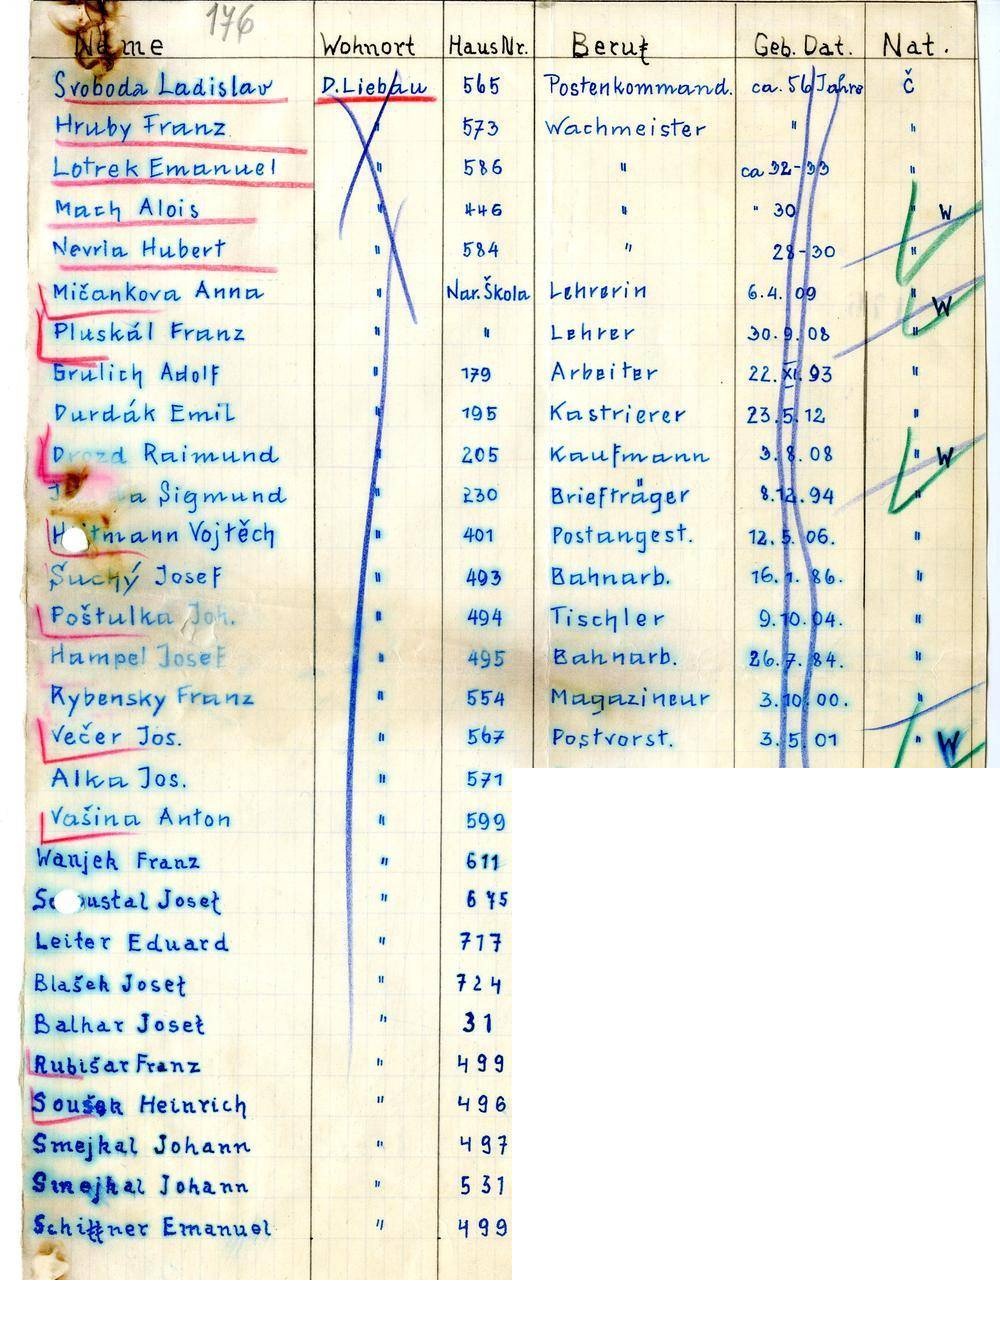 176
Name Wohnort Haus Nr. Beruf Geb. Dat. Nat.
Svoboda Ladislav D. Liebau 565 Postenkommand. ca. 56 Jahre Č
Hruby Franz " 573 Wachmeister " "
Lotrek Emanuel " 586 " ca 32-33 "
Mach Alois " 446 " " 30 " W
Nevrla Hubert " 584 " 28-30 "
Mičankova Anna " Nar. Škola Lehrerin 6.4. 09 " W
Pluskál Franz " " Lehrer 30.9.08 "
Grulich Adolf " 179 Arbeiter 22.XI.93 "
Durdák Emil " 195 Kastrierer 23.5.12 "
Drozd Raimund " 205 Kaufmann 3.8.08 " W
Sigmund " 230 Briefträger 8.12.94 "
Vojtěch " 401 Postangest. 12.5.06. "
Šuchý Josef " 493 Bahnarb. 16.1.86. "
Poštulka Joh. " 494 Tischler 9.10.04. "
Hampel Josef " 495 Bahnarb. 26.7.84. "
Rybensky Franz " 554 Magazineur 3.10.00. "
Večer Jos. " 567 Postvorst. 3.5.01 " W
Alka Jos. " 571
Vašina Anton " 599
Wanjek Franz " 611
Josef " 675
Leiter Eduard " 717
Blašek Josef " 724
Balhar Josef " 31
Rubišar Franz " 499
Soušek Heinrich " 496
Smejkal Johann " 497
Smejkal Johann " 531
Schiffner Emanuel " 499